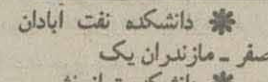 ✽ دانشکده نفت آبادان
صفر ـ مازندران یک